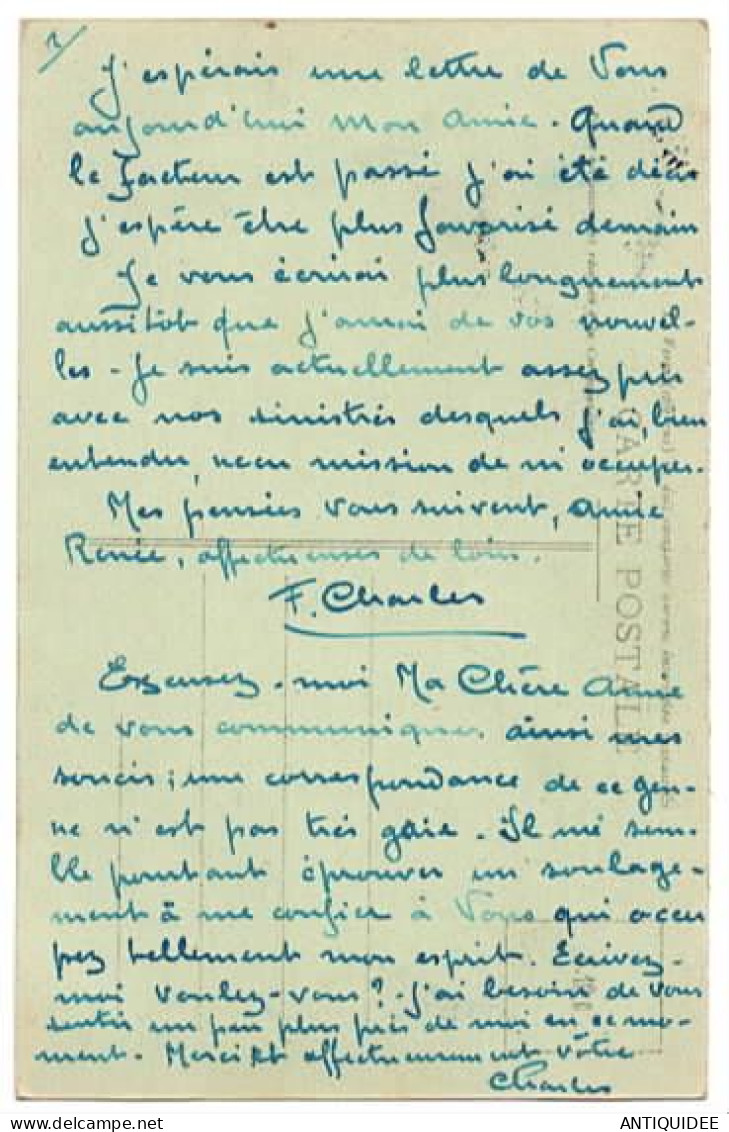 2
J'espérais une lettre de Vous
aujourd'hui mon amie. Quand
le facteur est passé j'ai été déçu
j'espère être plus favorisé demain
Je vous écrirai plus longuement
aussitôt que j'aurai de vos nouvel-
les - Je suis actuellement assez pris
avec nos sinistrés desquels j'ai, bien
entendu, reçu mission de m'occuper.
Mes pensées vous suivent, amie
Renée, affectueuses de loin.
F. Charles
Excusez-moi Ma Chère Amie
de vous communiquer ainsi mes
soucis; une correspondance de ce gen-
re n'est pas très gaie. Il me sem-
ble pourtant éprouver un soulage-
ment à me confier à Vous qui occu
pez tellement mon esprit. Ecrivez-
moi voulez-vous? - J'ai besoin de vous
sentir un peu plus près de moi en ce mo-
ment. Merci et affectueusement vôtre
Charles
CARTE POSTALE
ANTIQUIDEE